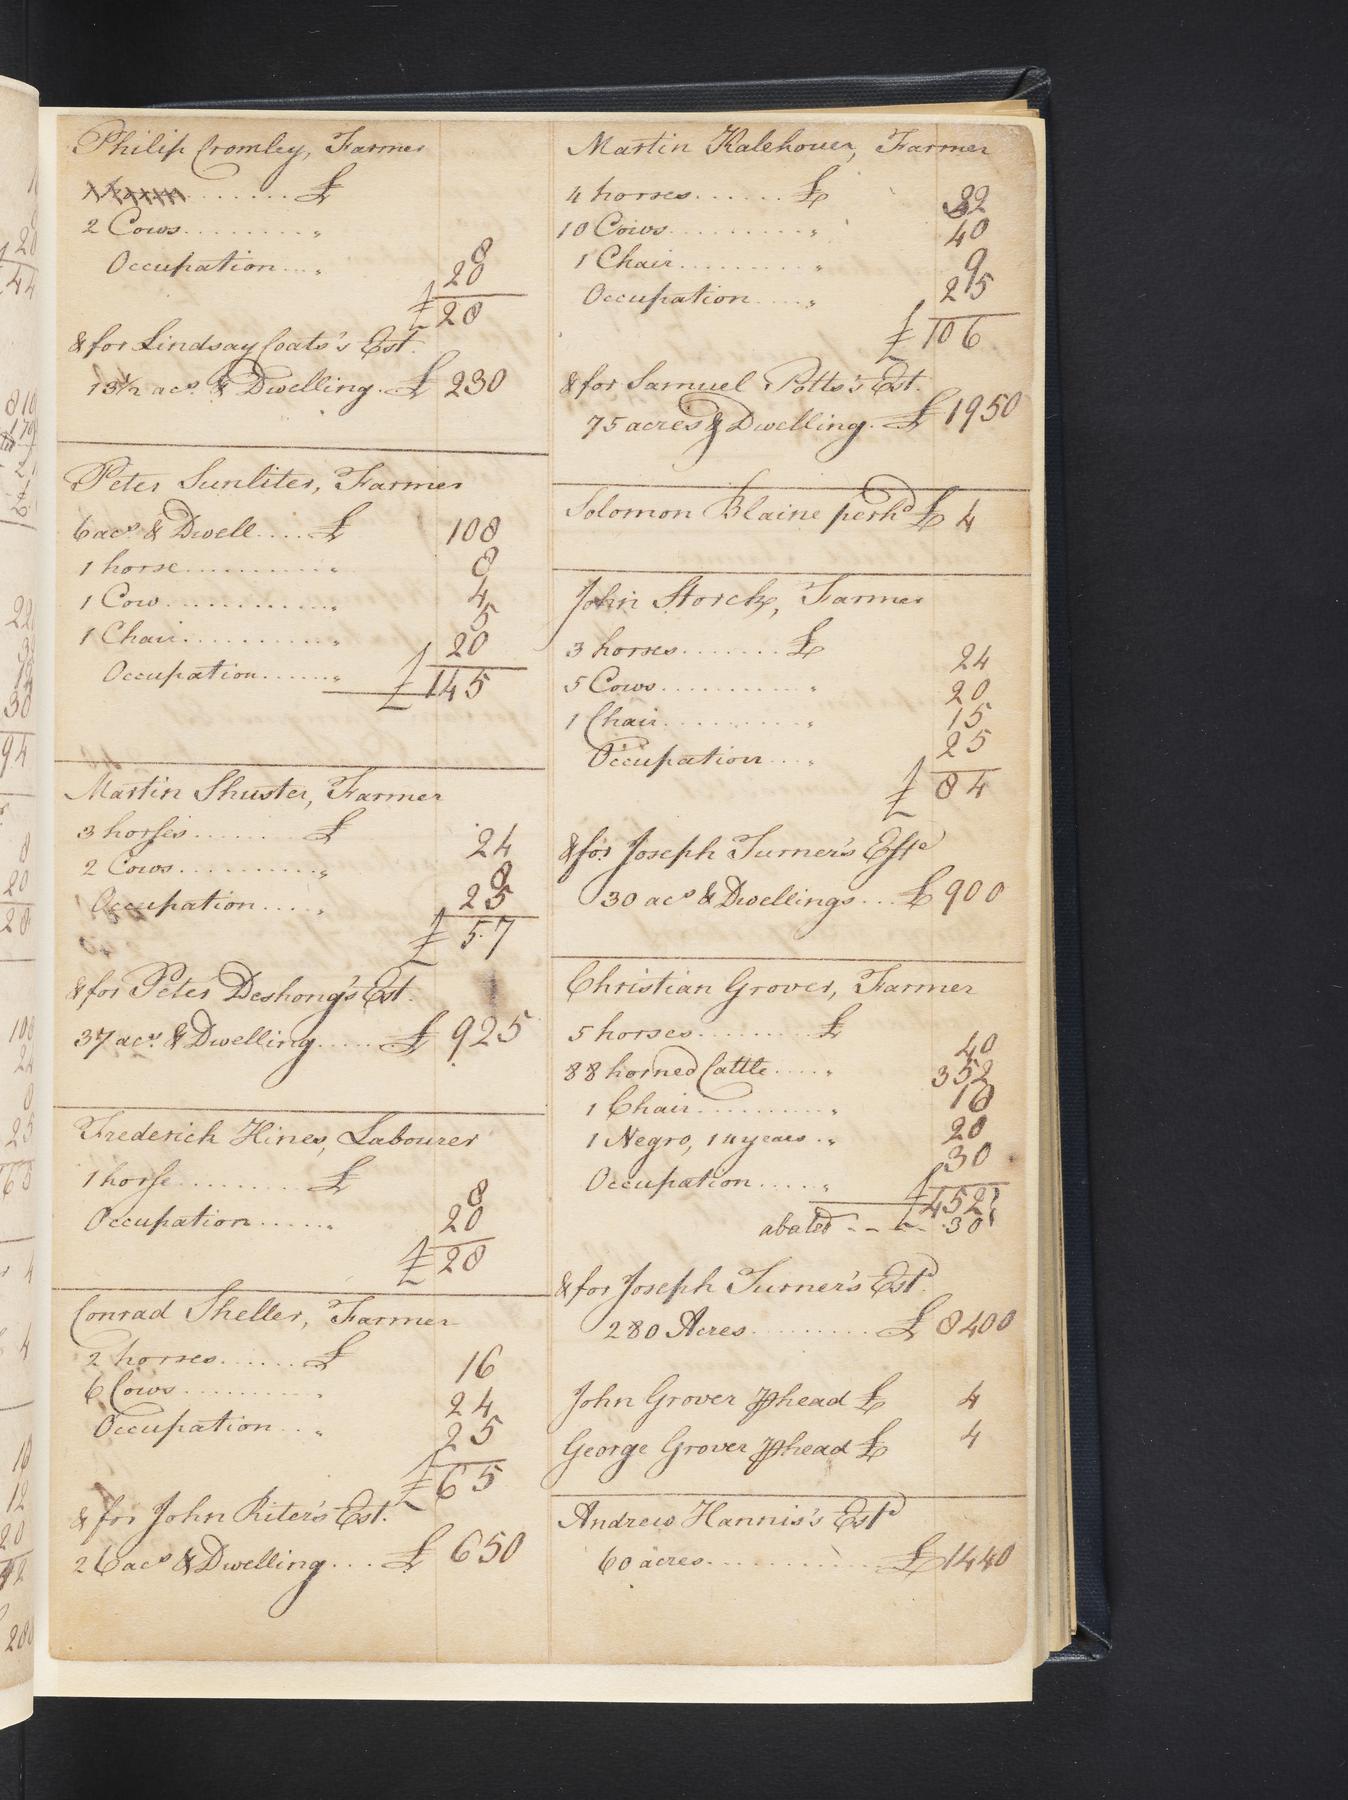 Philip Cromley, Farmer
....... £
2 Cows......... "
8
Occupation... " 20
£ 28
& for Lindsay Coats's Est.
13½ acs. & Dwelling. £ 230
Peter Sunliter, Farmer
6 acs. & Dwell.... £ 108
1 horse........... " 8
1 Cow............ " 4
1 Chair........... " 5
Occupation...... " 20
£ 145
Martin Shuster, Farmer
3 horses....... £ 24
2 Cows.......... " 8
Occupation.... " 25
£ 57
& for Peter Deshong's Est.
37 acs. & Dwelling...... £ 925
Frederich Hines, Labourer
1 horse.......... £ 8
Occupation...... " 20
£ 28
Conrad Sheller, Farmer
2 horses...... £ 16
6 Cows.......... " 24
Occupation... " 25
£ 65
& for John Riter's Est.
26 acs & Dwelling... £ 650
Martin Kalehouer, Farmer
4 horses...... £ 32
10 Cows.......... " 40
1 Chair.......... " 9
Occupation.... " 25
£ 106
& for Samuel Potts's Est.
75 acres & Dwelling. £ 1950
Solomon Blaine perhd £ 4
John Storck, Farmer
3 horses....... £ 24
5 Cows.......... " 20
1 Chair.......... " 15
Occupation... " 25
£ 84
& for Joseph Turner's Este
30 acs & Dwellings... £ 900
Christian Grover, Farmer
5 horses......... £ 40
88 horned Cattle.... " 352
1 Chair.......... " 10
1 Negro, 14 years.. " 20
Occupation..... " 30
£ 452
abated - - £ - 30
& for Joseph Turner's Estd
280 Acres......... £ 8400
John Grover ⅌ head £ 4
George Grover ⅌ head £ 4
Andrew Hannis's Estd
60 acres............ £ 1440